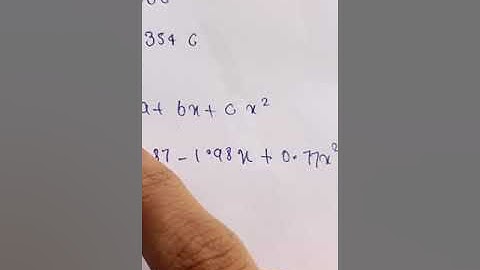 354 c
a + bx + c x²
87 - 1.98x + 0.77x²